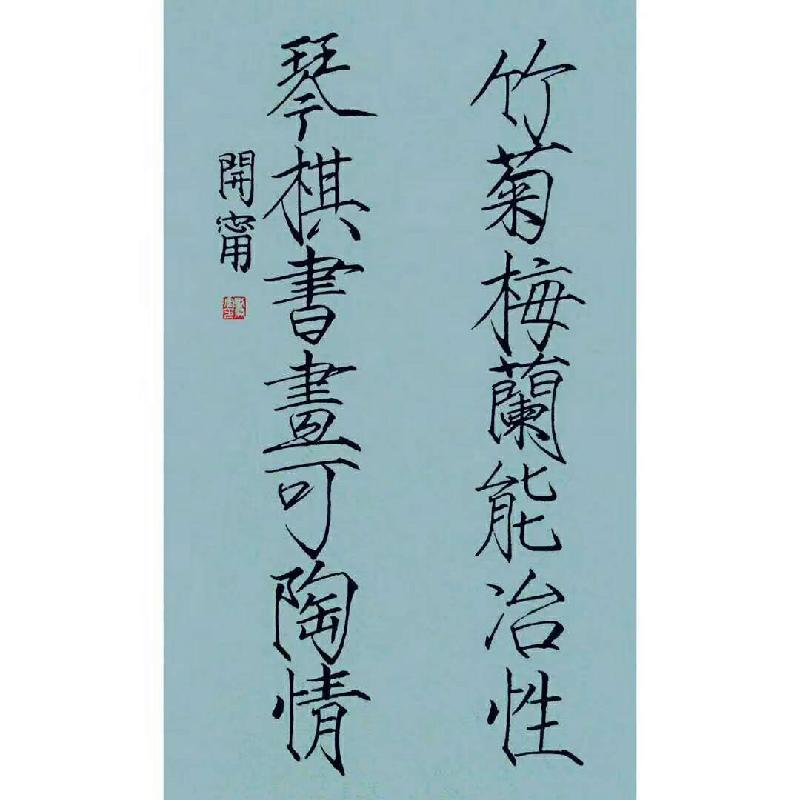 竹菊梅蘭能冶性
琴棋書畫可陶情
開甯